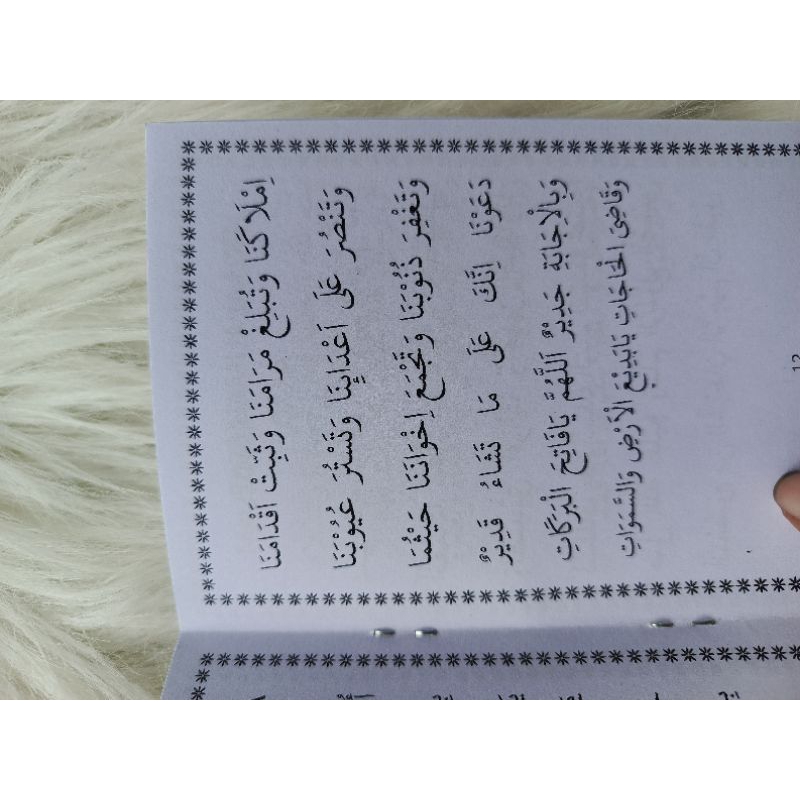 اِمْلَاكَنَا وَتُبَلِّغْ مَرَامَنَا وَثَبِّتْ اَقْدَامَنَا
وَتَنْصُرَ عَلَى اَعْدَائِنَا وَتَسْتُرَ عُيُوْبَنَا
وَتَغْفِرَ ذُنُوْبَنَا وَتَجْمَعَ اِخْوَانَنَا حَيْثُمَا
دَعَوْنَا اِنَّكَ عَلَى مَا تَشَاءُ قَدِيْرٌ
وَبِالْاِجَابَةِ جَدِيْرٌ اَللّٰهُمَّ يَافَاتِحَ الْبَرَكَاتِ
وَقَاضِىَ الْحَاجَاتِ يَابَدِيْعَ الْاَرْضِ وَالسَّمَوَاتِ
12